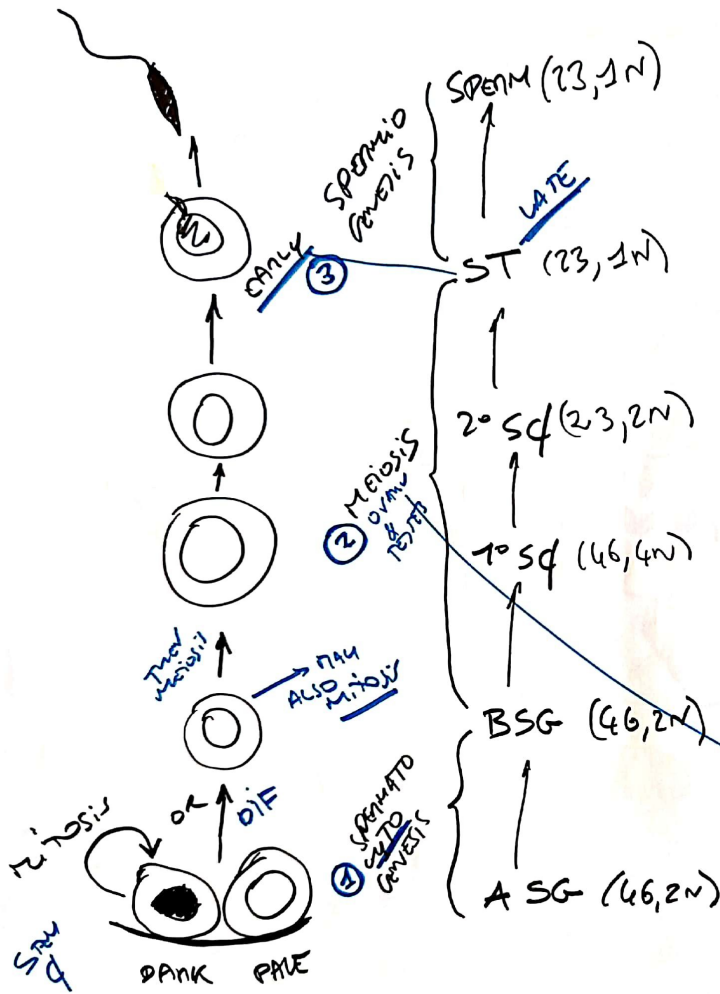 SPERM (23,1N)
SPERMIO
GENESIS
LATE
EARLY
3
ST (23,1N)
2° SC (23,2N)
MEIOSIS
OVARY
&
TESTES
2
1° SC (46,4N)
THEN
MEIOSIS
MAY
ALSO
MITOSIS
BSG (46,2N)
MITOSIS
OR
DIF
SPERMATO
CYTO
GENESIS
1
A SG (46,2N)
STEM
C
DARK PALE